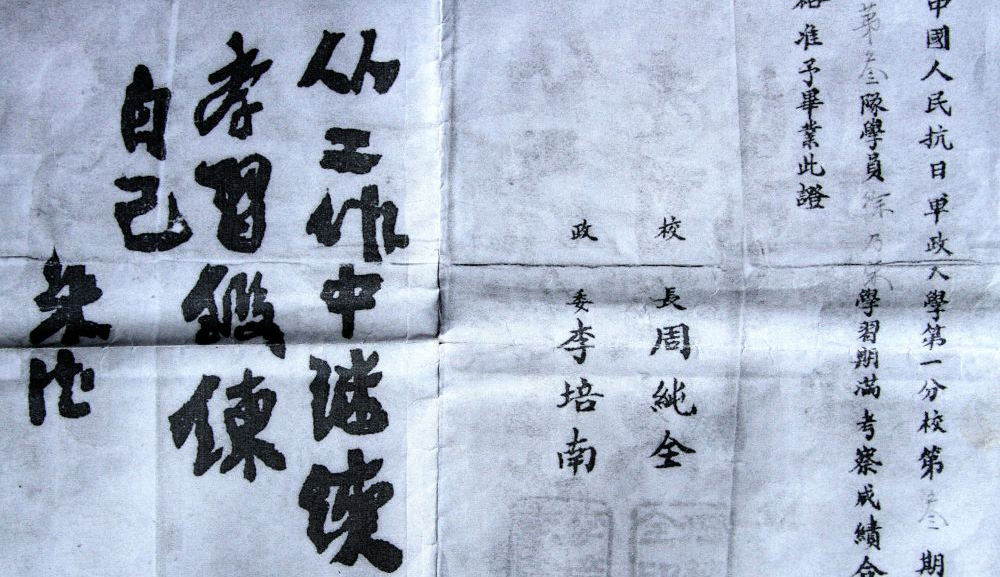 中國人民抗日軍政大學第一分校第叁期
第叁隊學員徐乃學習期滿考察成績合
格准予畢業此證
校長周純全
政委李培南
从工作中继续
孝習鍛鍊
自己
朱德